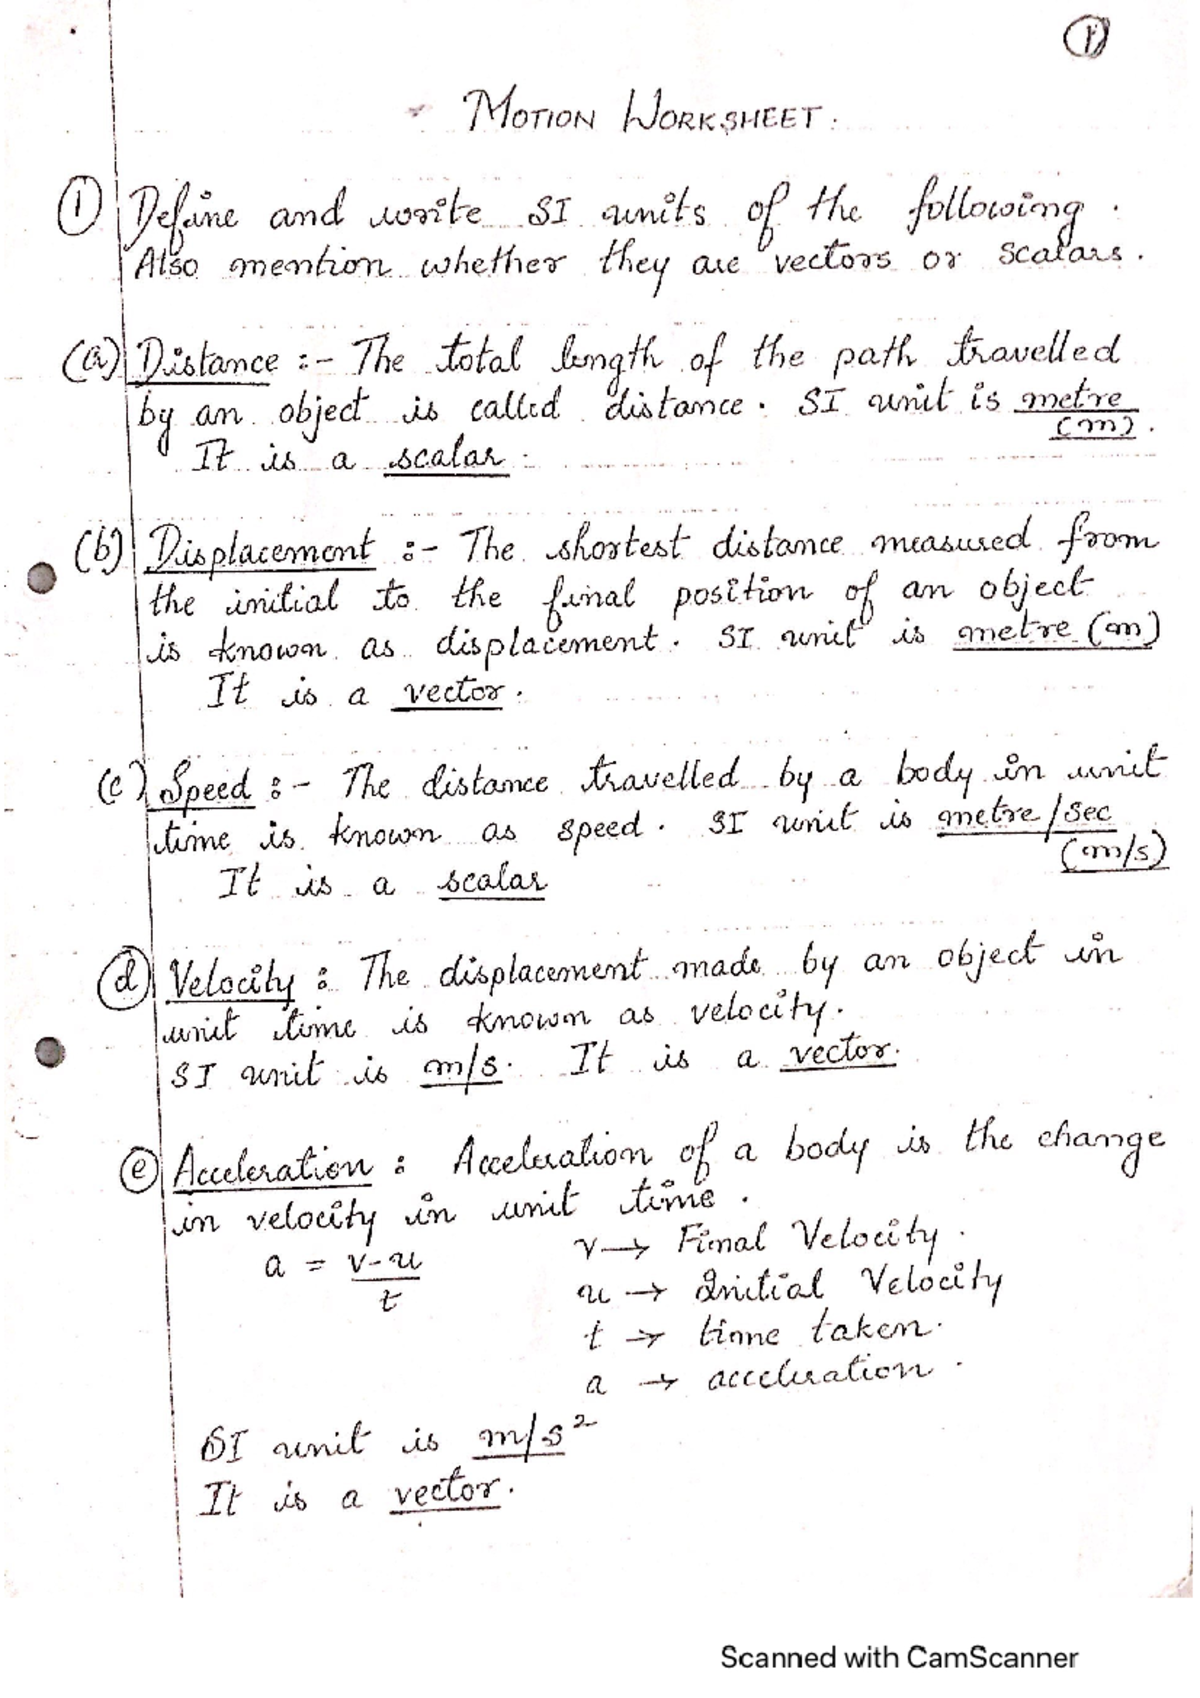 1
MOTION WORKSHEET.
1 Define and write SI units of the following.
Also mention whether they are vectors or scalars.
(a) Distance :- The total length of the path travelled
by an object is called distance. SI unit is metre
(m).
It is a scalar.
(b) Displacement :- The shortest distance measured from
the initial to the final position of an object
is known as displacement. SI unit is metre (m)
It is a vector.
(c) Speed :- The distance travelled by a body in unit
time is known as speed. SI unit is metre/sec
(m/s)
It is a scalar
d Velocity : The displacement made by an object in
unit time is known as velocity.
SI unit is m/s. It is a vector.
e Acceleration : Acceleration of a body is the change
in velocity in unit time.
a = v-u / t
v → Final Velocity.
u → Initial Velocity
t → time taken.
a → acceleration.
SI unit is m/s²
It is a vector.
Scanned with CamScanner